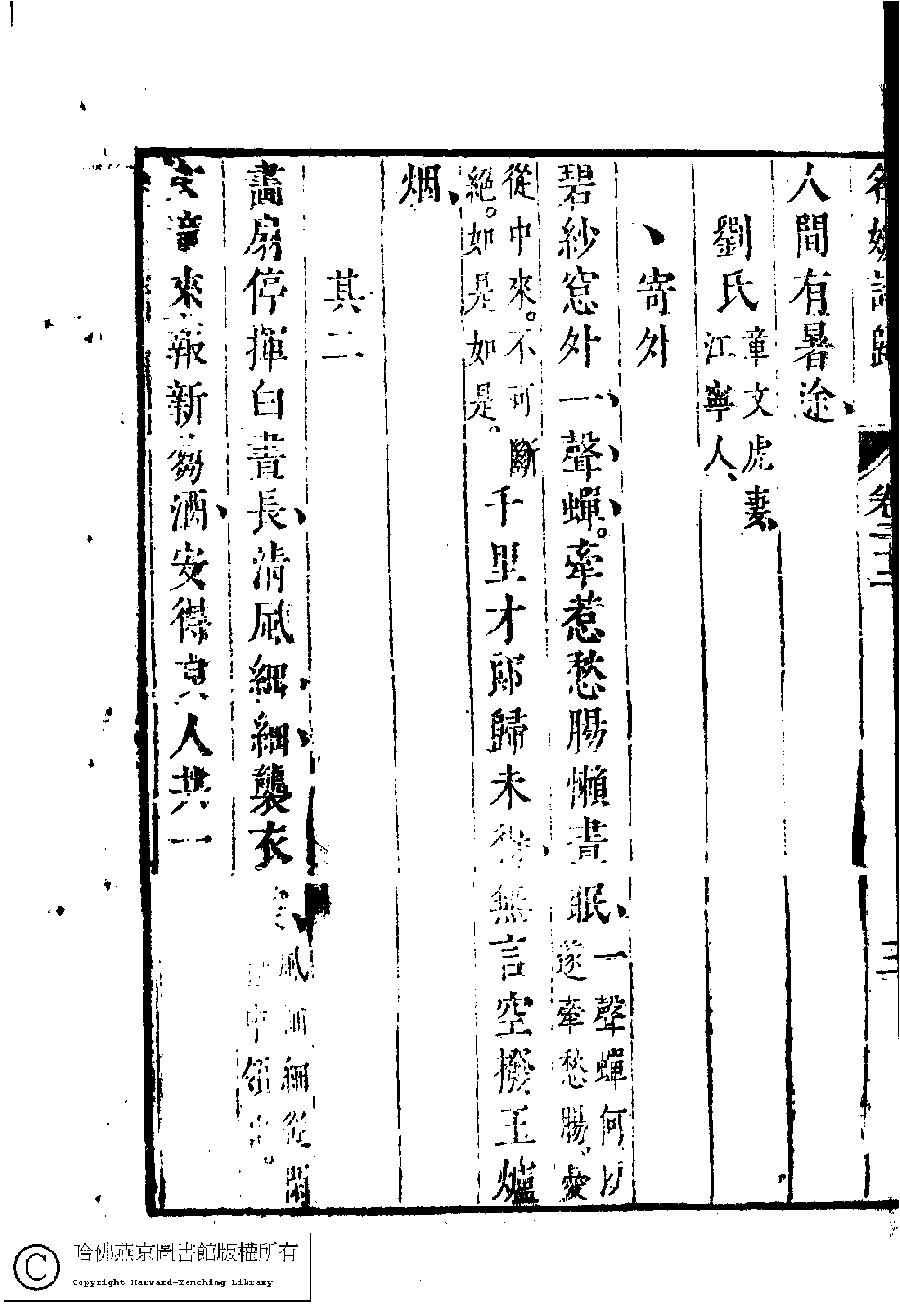 名媛詩歸 卷
人間有暑途
劉氏 章文虎妻
江寧人
寄外
碧紗窓外一聲蟬。牽惹愁腸懶晝眠 一聲蟬何以
遂牽愁腸愛
從中來。不可斷
絕。如是如是。
千里才郎歸未得無言空撥玉爐
烟
其二
畫扇停揮白晝長清風細細襲衣 風細細從閒
中領出。
童來報新篘酒安得其人共一
哈佛燕京圖書館版權所有
Copyright Harvard-Yenching Library